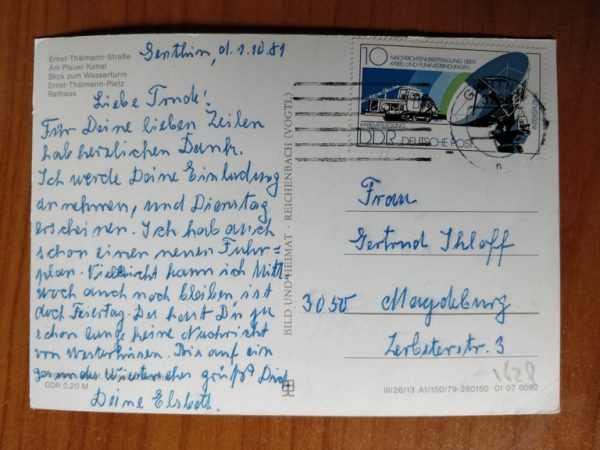 Ernst-Thälmann-Straße
Am Plauer Kanal
Blick zum Wasserturm
Ernst-Thälmann-Platz
Rathaus
Genthin, d. 1.10.81
Liebe Trude!
Für Deine lieben Zeilen
hab herzlichen Dank.
Ich werde Deine Einladung
annehmen, und Dienstag
erscheinen. Ich hab auch
schon einen neuen Fahr=
plan. Vielleicht kann ich Mitt
woch auch noch bleiben, ist
doch Feiertag. Du hast Du ja
schon lange keine Nachricht
von Westerhüsen. Bis auf ein
gesundes Wiedersehen grüßt Dich
Deine Elsbeth.
DDR 0,20 M
BILD UND HEIMAT · REICHENBACH (VOGTL)
10
NACHRICHTENÜBERTRAGUNG ÜBER
KABEL UND FUNKVERBINDUNGEN
KABELVERLEGUNG
DDR DEUTSCHE POST
Frau
Gertrud Ihloff
3050 Magdeburg
Zerbsterstr. 3
1628
III/26/13 A1/150/79-280150 01 07 0092